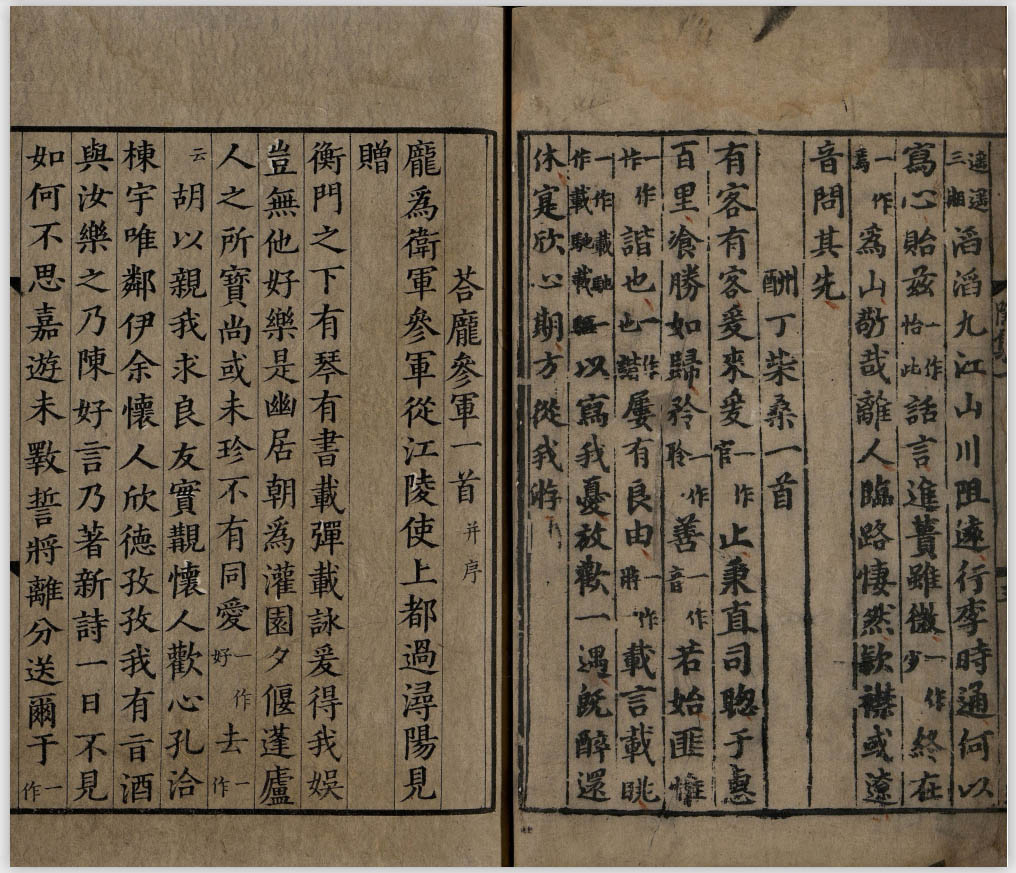 遥遥三湘滔滔九江山川阻遠行李時通何以
寫心貽茲一作怡此話言進蕢雖微一作少終在
一作焉為山敬哉離人臨路悽然款襟或遼
音問其先
酬丁柴桑一首
有客有客爰來爰一作宦止秉直司聦于惠
百里飡勝如歸矜一作聆善一作音若始匪惟
一作作諧也一作也諧屢有良由一作將載言載眺
一作載馳一作載馳載驅以寫我憂放歡一遇既醉還
休寔欣心期方從我游
荅龐參軍一首并序
龐爲衛軍參軍從江陵使上都過潯陽見
贈
衡門之下有琴有書載彈載詠爰得我娱
豈無他好樂是幽居朝爲灌園夕偃蓬廬
人之所寶尚或未珍不有同愛一作好去一作
云胡以親我求良友實覯懷人歡心孔洽
棟宇唯鄰伊余懷人欣德孜孜我有㫖酒
與汝樂之乃陳好言乃著新詩一日不見
如何不思嘉遊未斁誓將離分送爾于一作